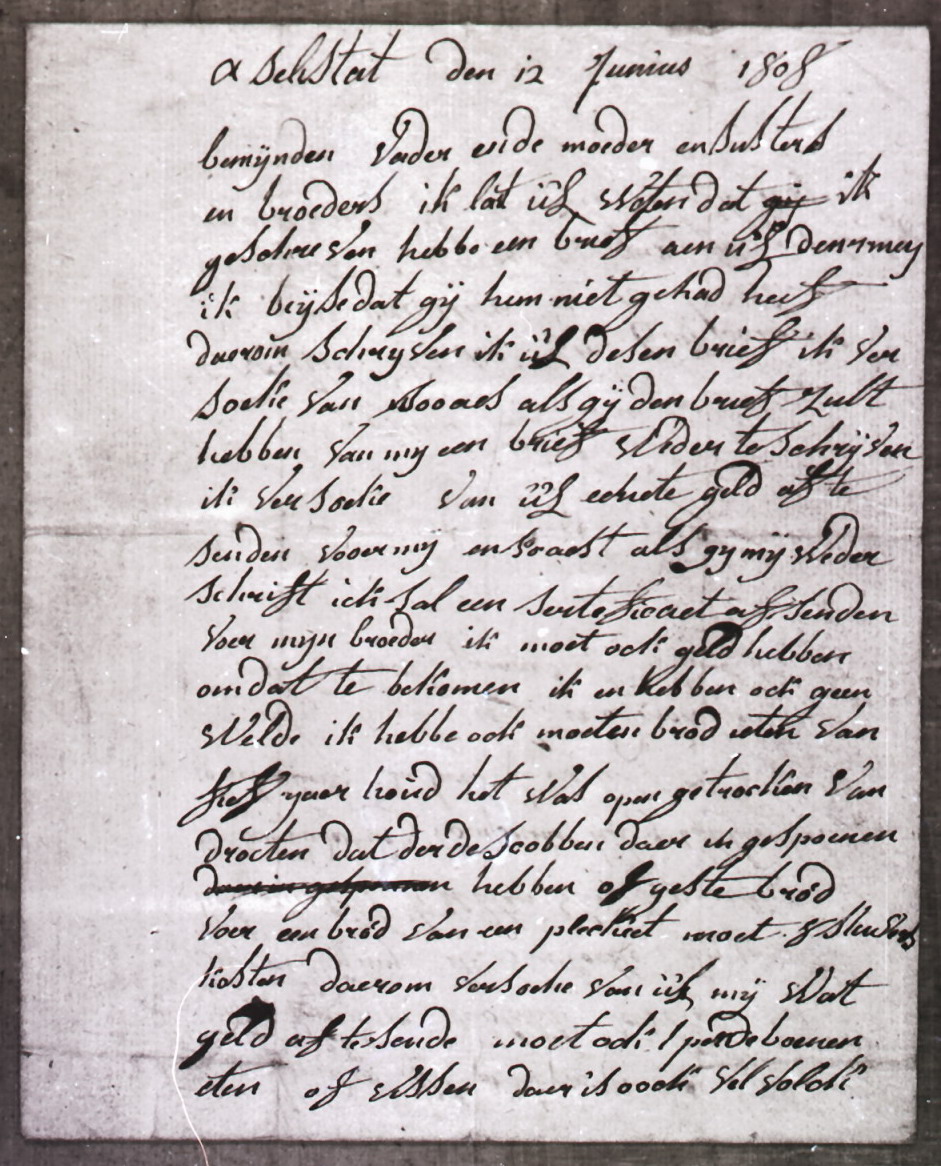 a Selistat den 12 Junius 1808
bemynden Vader ende moeder en susters
en broeders ik lat üL Weten dat gij ik
geschreVen hebbe een brief aen üL den 7 mey
ik beyse dat gÿ hem niet gehad heef
daerom SchryVen ik üL desen brief ik Ver
soeke Van sooaes als gÿ den brief zult
hebben Van my een brief Weder te SchrijVen
ik Versoeke Van üL eenete geld af te
senden Vooer mij en soaest als gy mÿ Weder
schrift ick sal een sertefikaet af senden
Voer mijn broeder ik moet ock geld hebben
om dat te bekomen ik en hebben ock geen
Welde ik hebbe ock moeten brod eten Van
jaer houd het Was open getrocken Van
droeten dat der de Scobben daer in gespoenen
daer in gespoenen hebben of geste brod
Voer een brod Van een plecket moet 8 stuVers
kosten daerom Versoeke Van üL mÿ Wat
geld af te sende moet ock 1 perdeboenen
eten of Vissen daer is oock Vel Volck